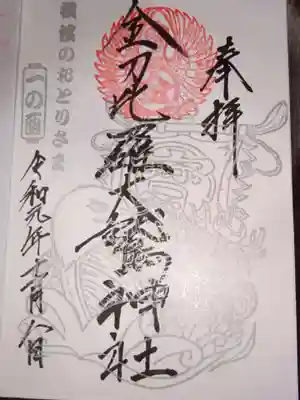 奉拝
金刀比羅大鷲神社
横浜のおとりさま
一の酉
令和元年十一月八日